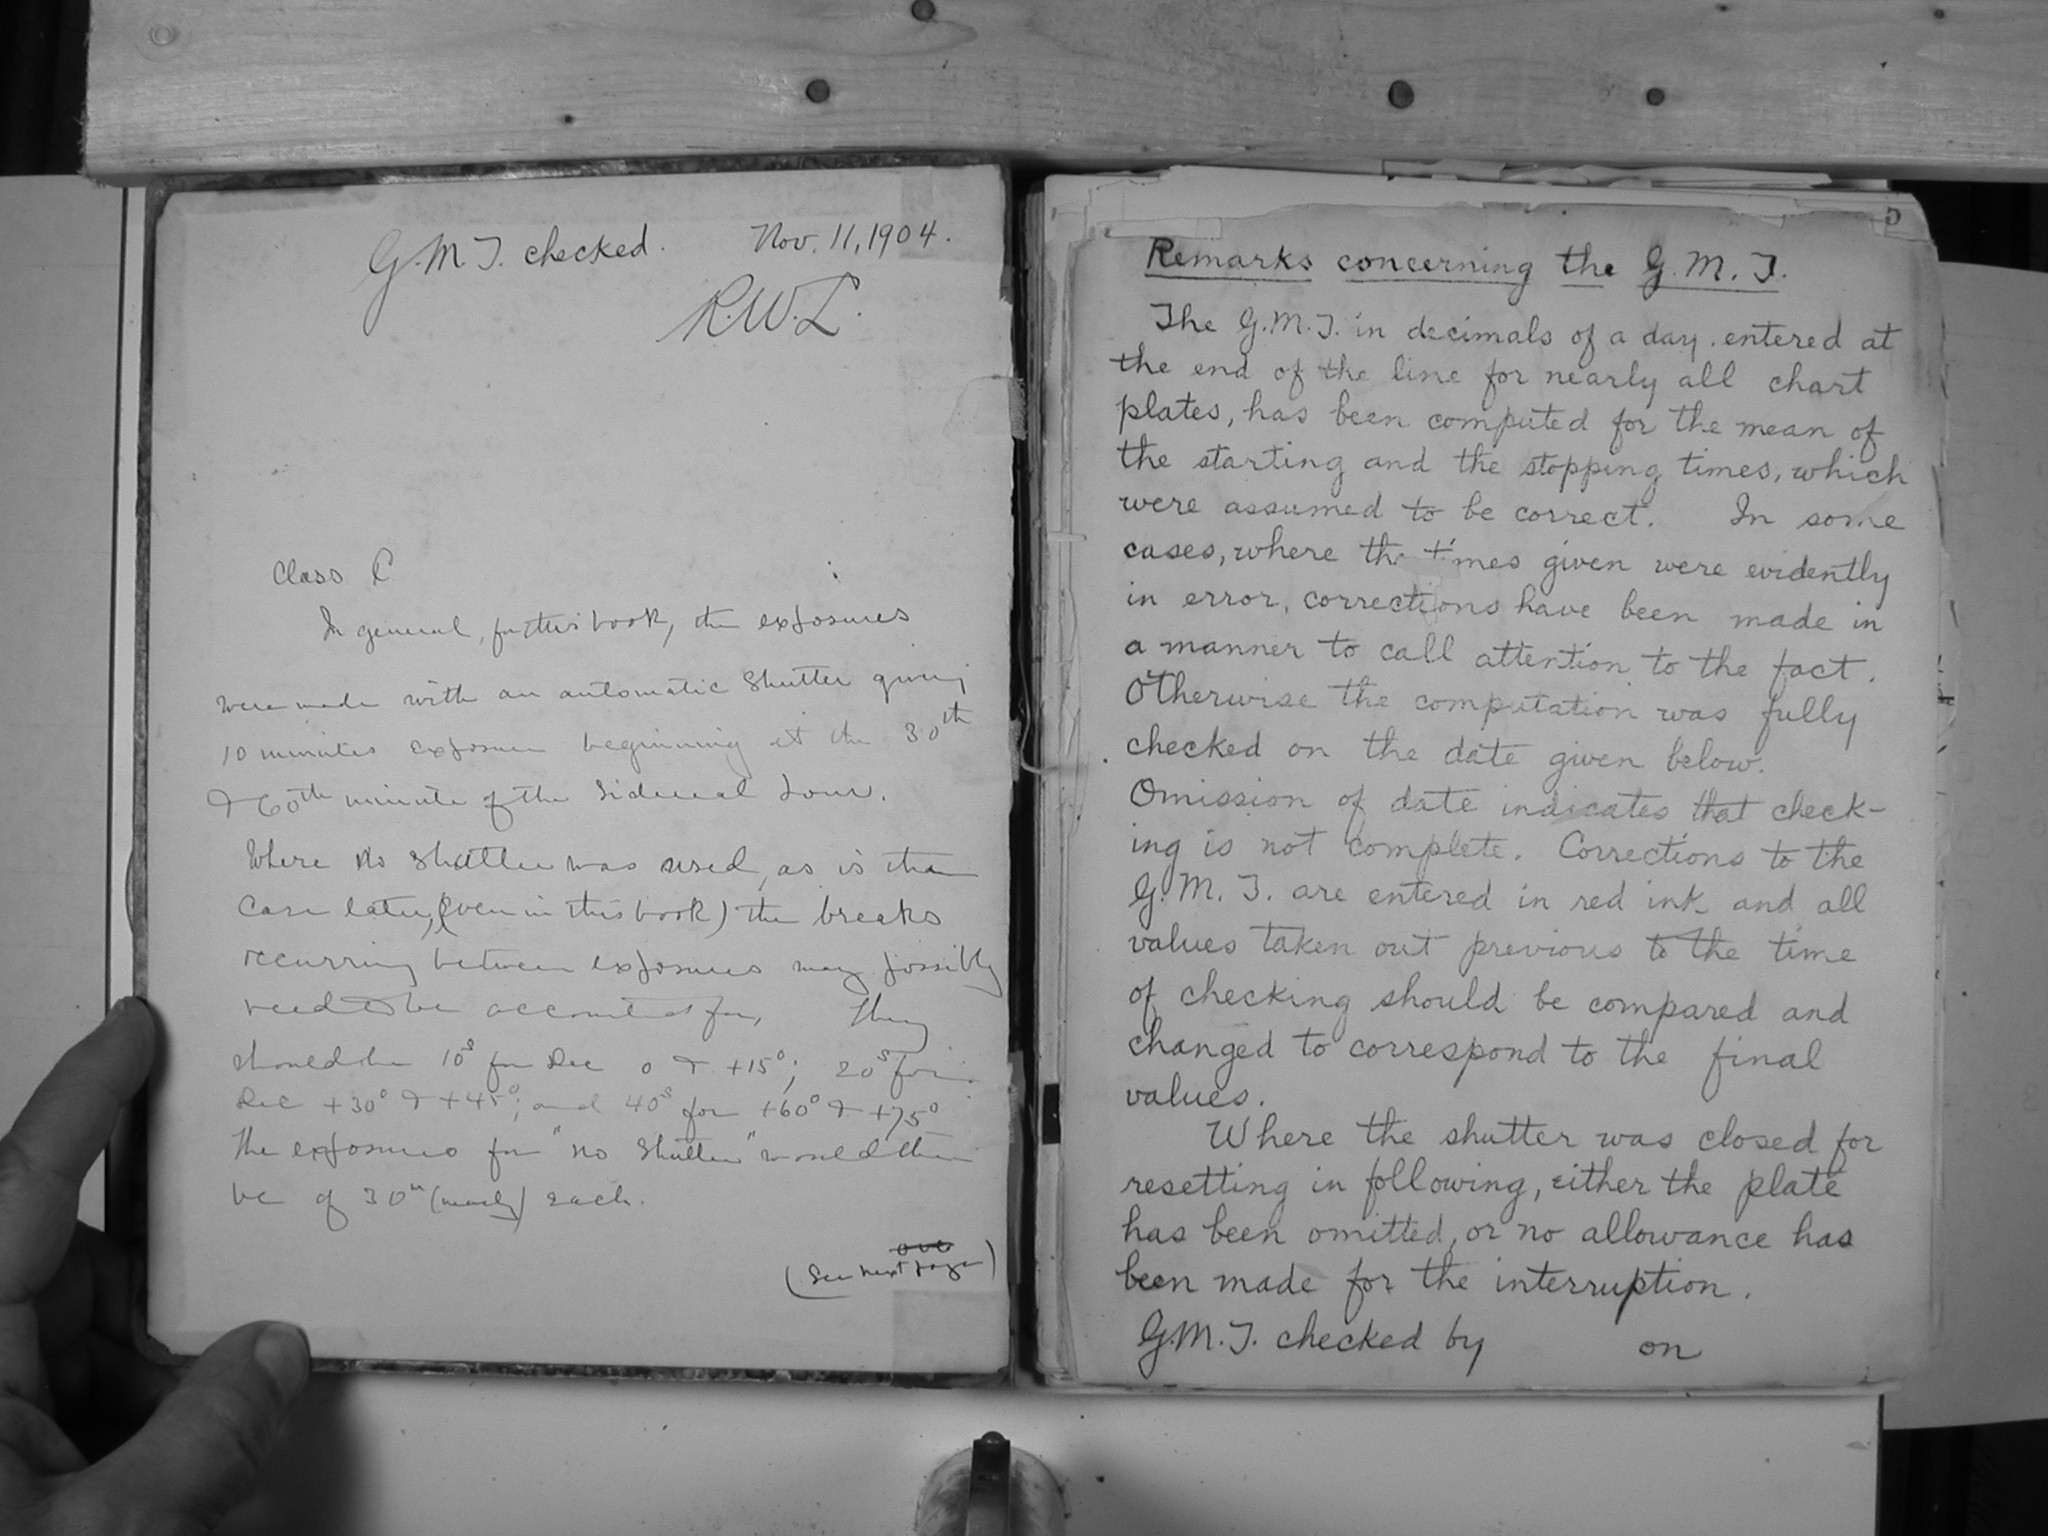 G.M.T. checked. Nov. 11, 1904.
R.W.L.
Class C
In general, for this book, the exposures
were made with an automatic Shutter giving
10 minutes exposure beginning at the 30th
& 60th minute of the Sidereal hour.
Where no shutter was used, as is the
case later, (even in this book) the breaks
occurring between exposures may possibly
need to be accounted for, They
should be 10s for Dec 0 & +15°; 20s for
Dec +30° & +45°; and 40s for +60° & +75°
The exposures for "no Shutter" would then
be of 30m (nearly) each.
over
(See next page)
5
Remarks concerning the G.M.T.
The G.M.T. in decimals of a day entered at
the end of the line for nearly all chart
plates, has been computed for the mean of
the starting and the stopping times, which
were assumed to be correct. In some
cases, where the times given were evidently
in error, corrections have been made in
a manner to call attention to the fact.
Otherwise the computation was fully
checked on the date given below.
Omission of date indicates that check-
ing is not complete. Corrections to the
G.M.T. are entered in red ink and all
values taken out previous to the time
of checking should be compared and
changed to correspond to the final
values.
Where the shutter was closed for
resetting in following, either the plate
has been omitted, or no allowance has
been made for the interruption.
G.M.T. checked by on